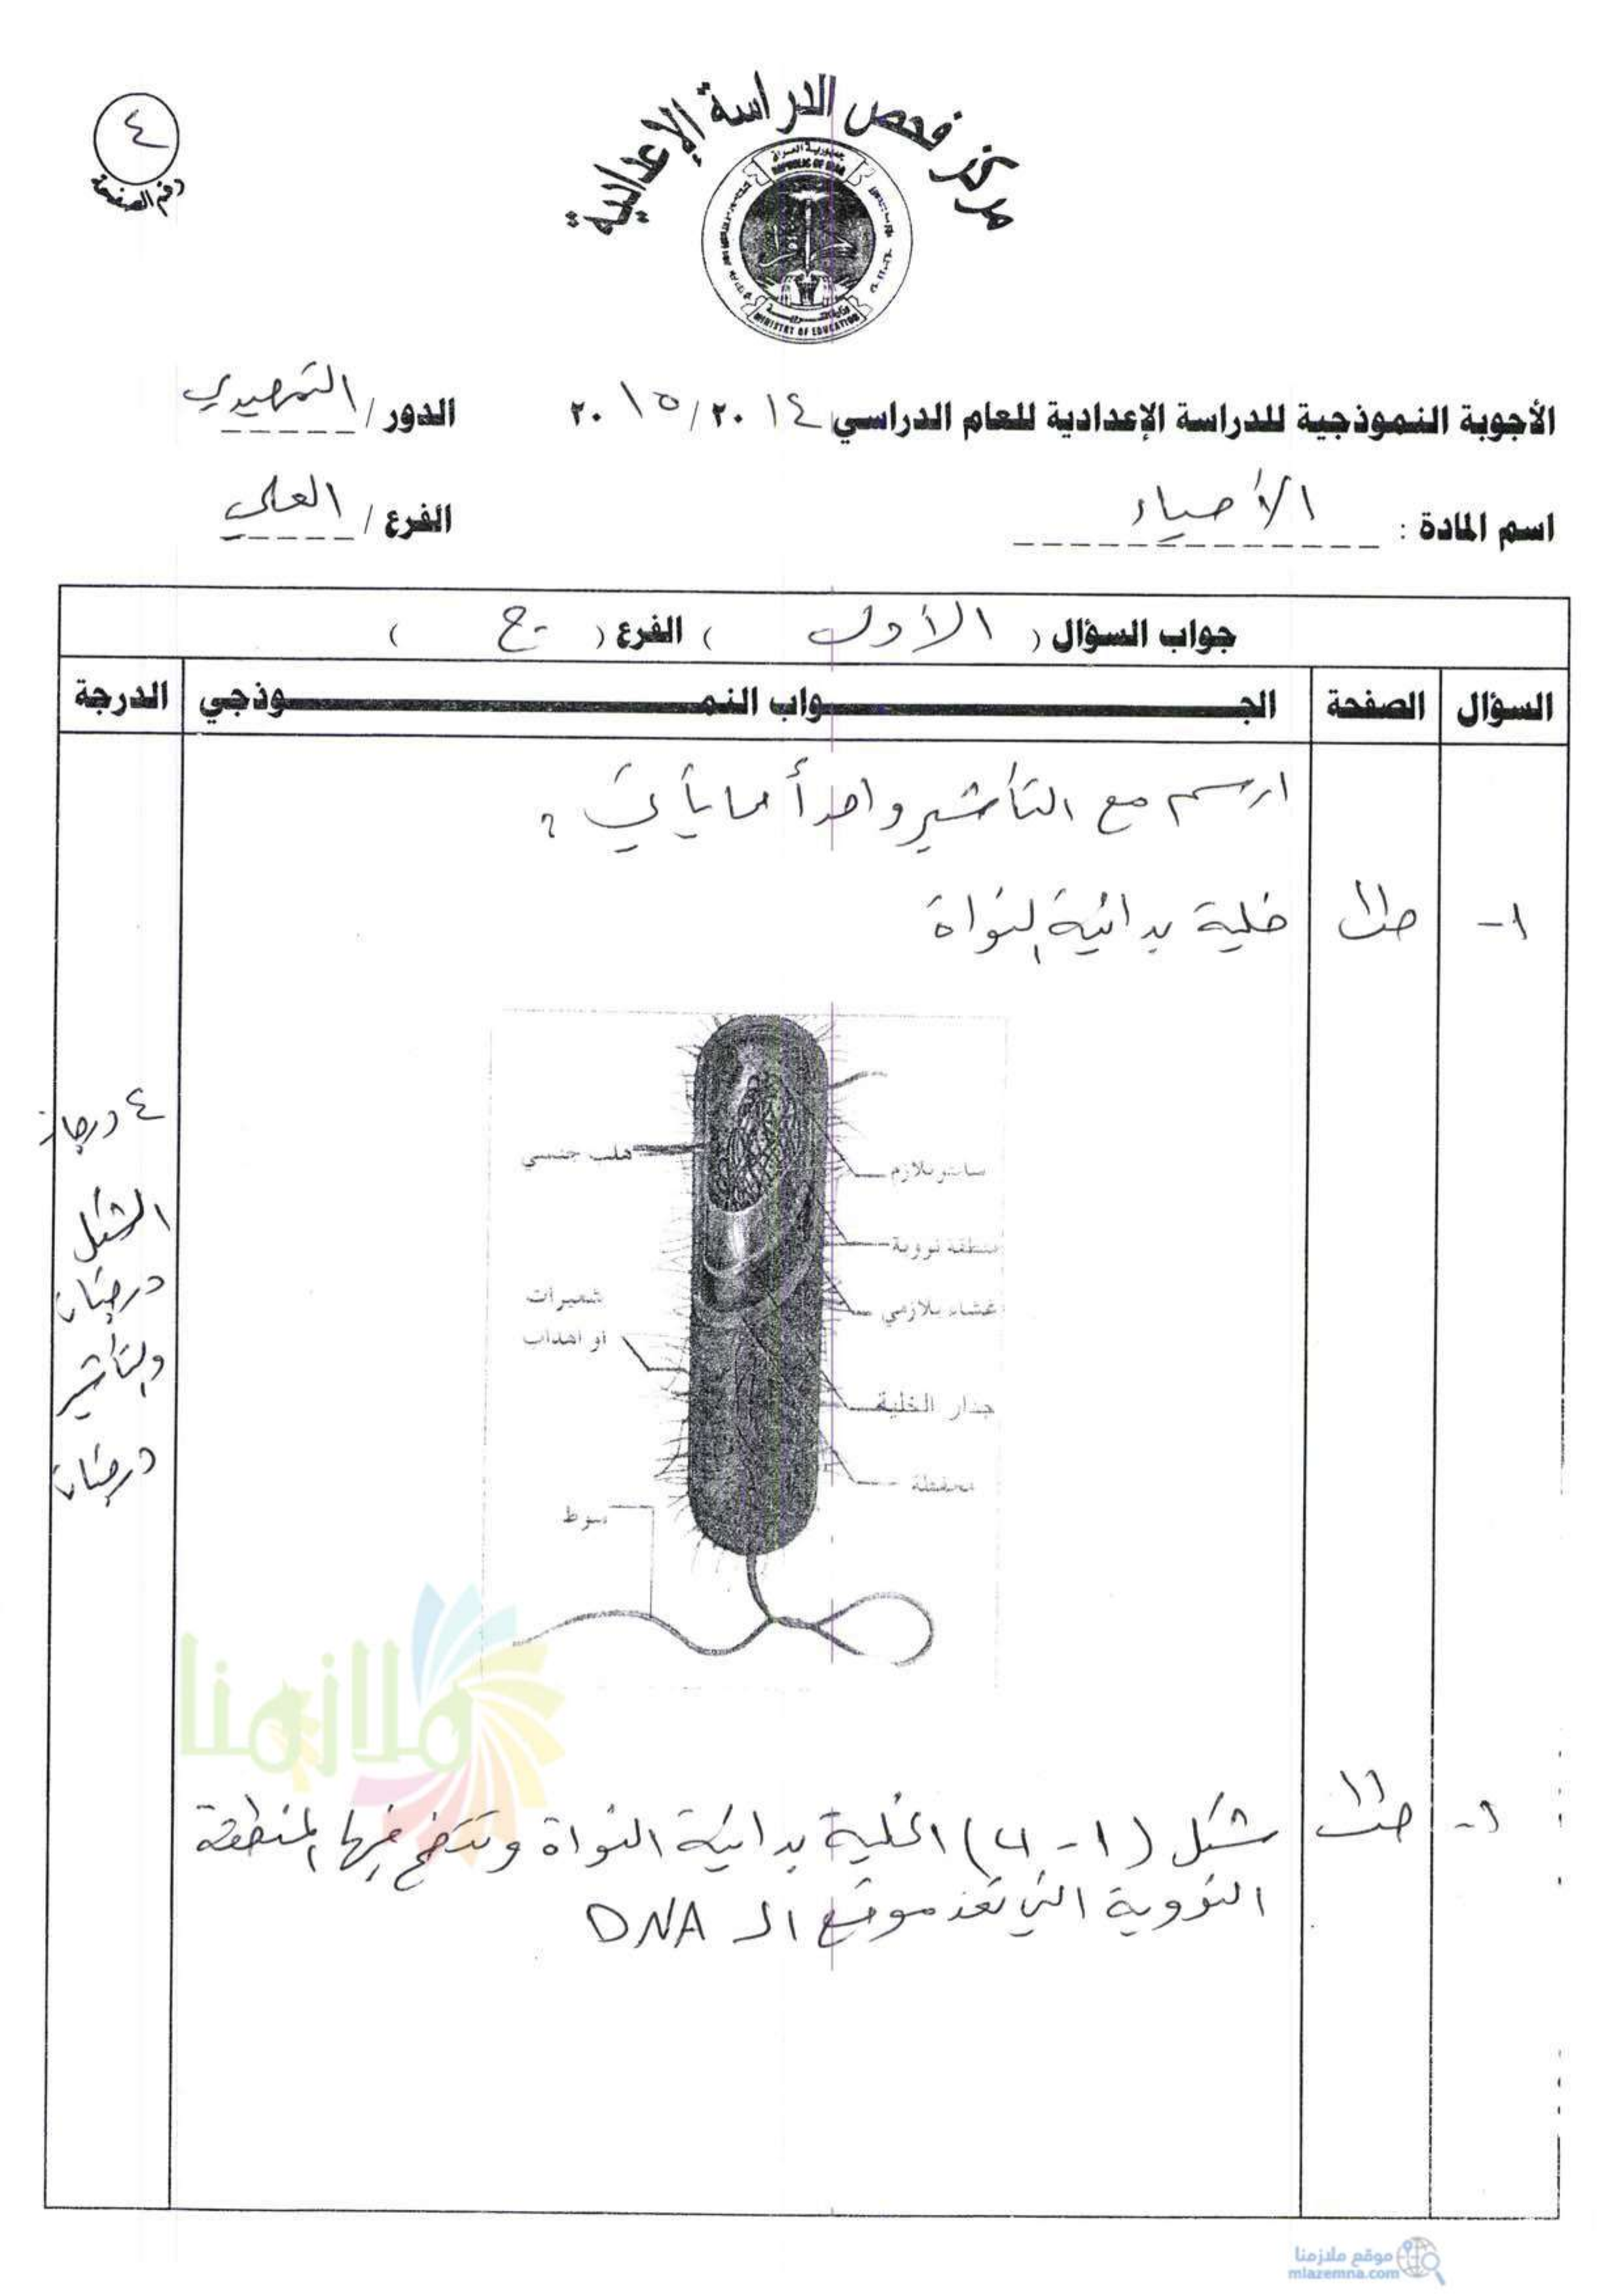 ٤
رقم الصفحة
مركز فحص الدراسة الإعدادية
جمهورية العراق
REPUBLIC OF IRAQ
MINISTRY OF EDUCATION
الأجوبة النموذجية للدراسة الإعدادية للعام الدراسي ٢٠١٤ / ٢٠١٥ الدور / التمهيدي
اسم المادة : الأحياء الفرع / العلمي
جواب السؤال ( الأول ) الفرع ( ج- )
السؤال الصفحة الجـواب النمـوذجي الدرجة
ارسم مع التأشير واحداً مما يأتي ؟
١- ص١١ خلية بدائية النواة
٤ درجات
الشكل
درجتان
والتأشير
درجتان
هلب جنسي
سايتوبلازم
منطقة نووية
غشاء بلازمي
شعيرات
أو اهداب
جدار الخلية
محفظة
سوط
ملازمنا
٢- ص١١ شكل (١-٤) الخلية بدائية النواة وتتضح فيها المنطقة
النووية التي تعد موقع الـ DNA
موقع ملازمنا
mlazemna.com